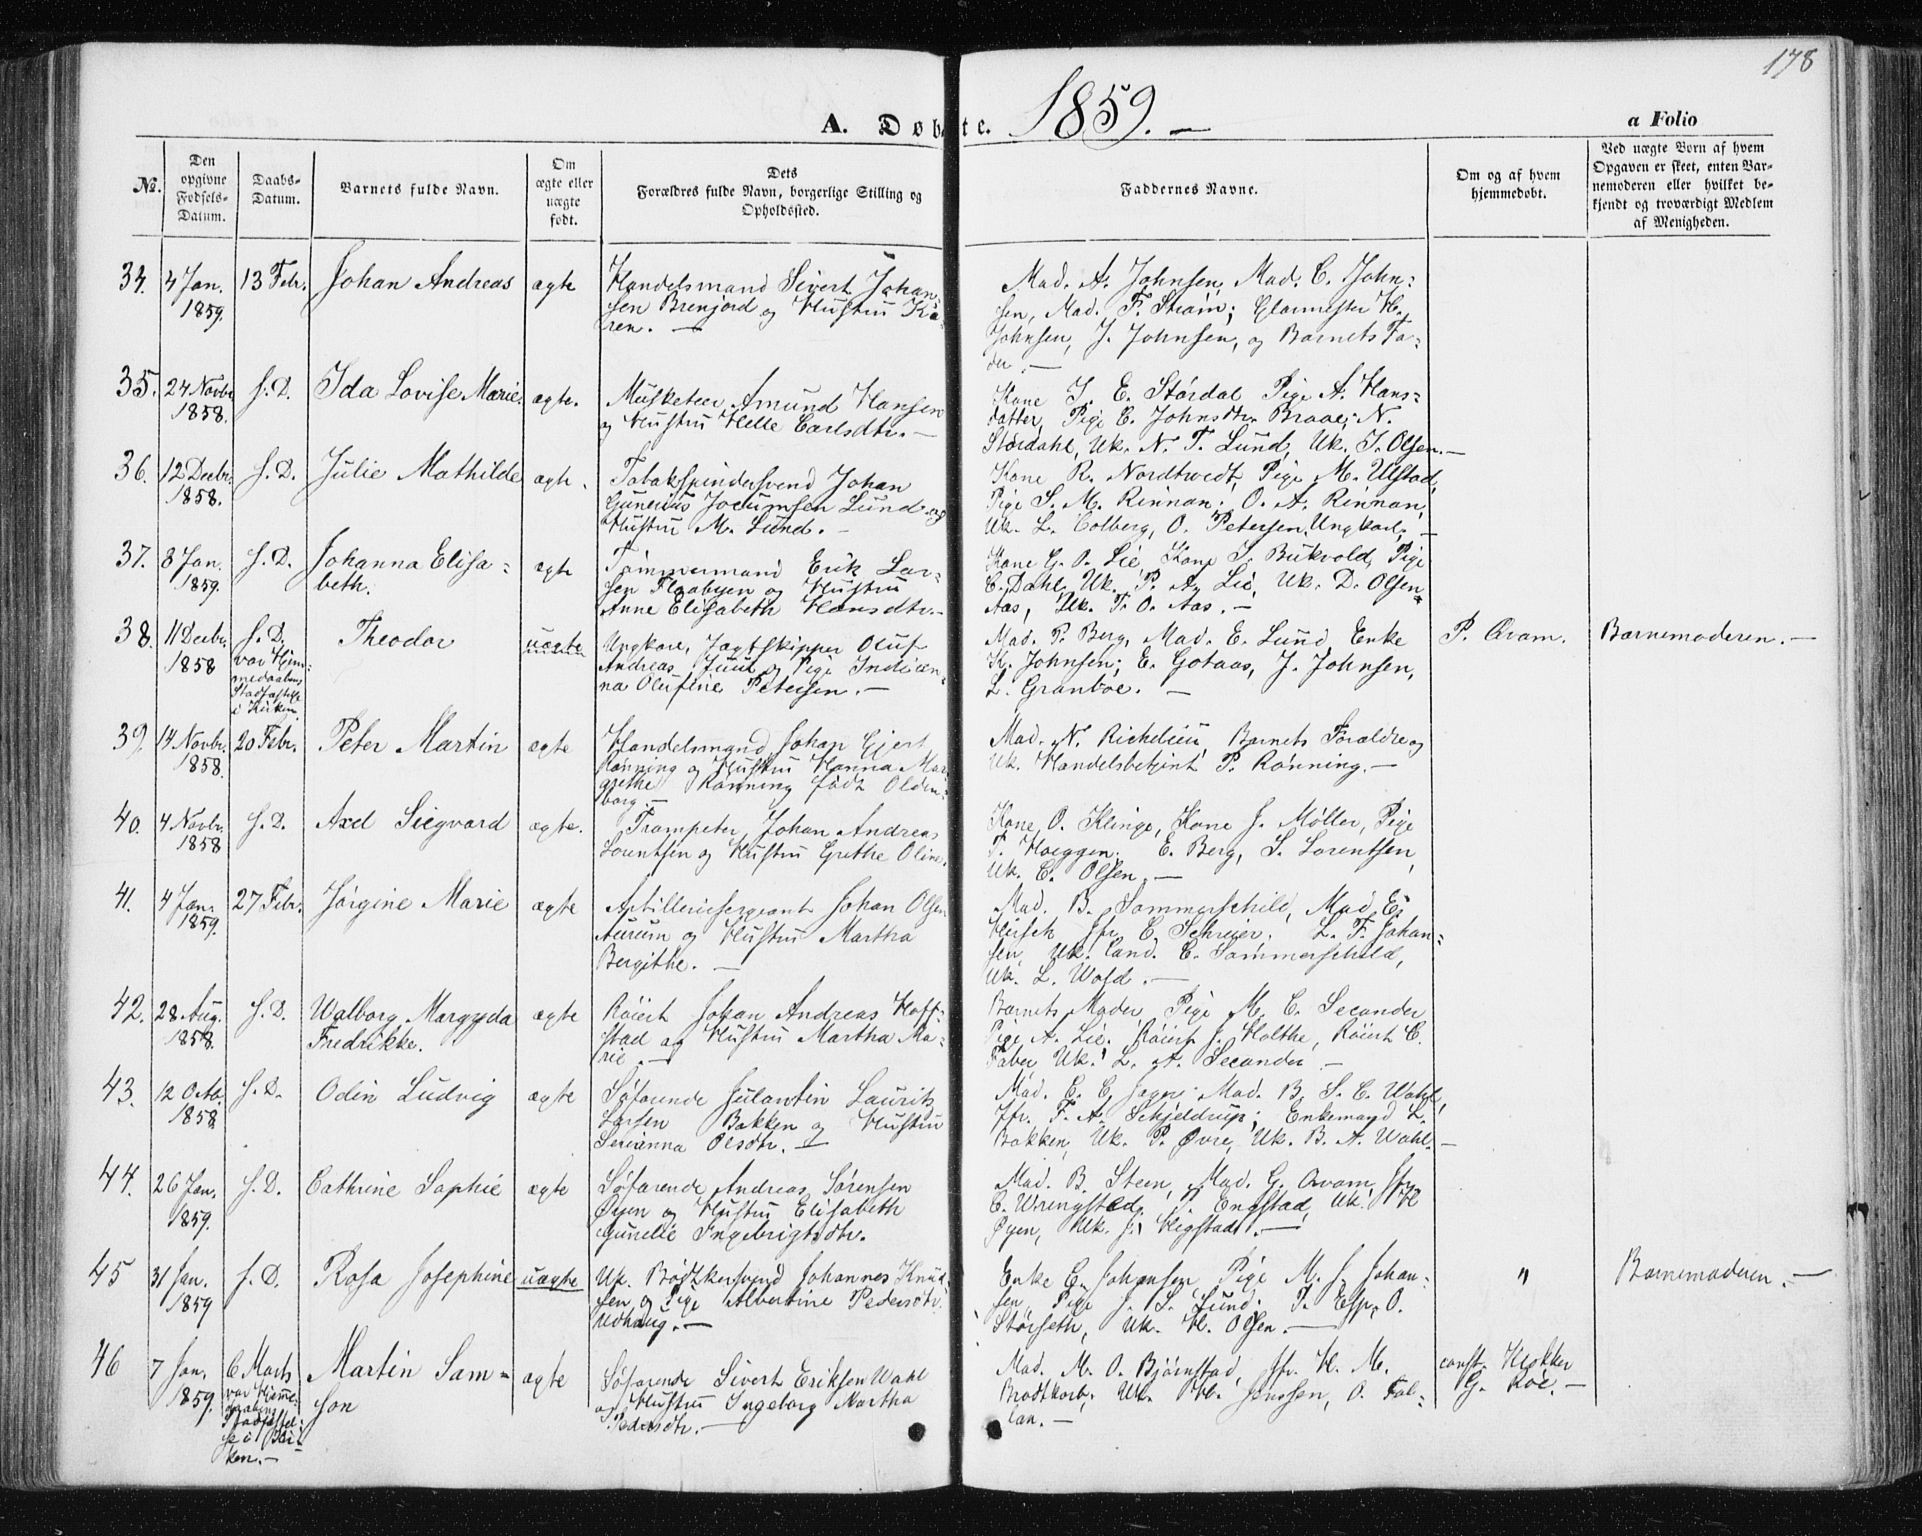 178
A. Døbte. 1859. —
a Folio
No.
Den opgivne Fødsels-Datum.
Daabs-Datum.
Barnets fulde Navn.
Om ægte eller uægte født.
Dets Forældres fulde Navn, borgerlige Stilling og Opholdssted.
Faddernes Navne.
Om og af hvem hjemmedøbt.
Ved uægte Børn af hvem Opgaven er skeet, enten Barnemoderen eller hvilket bekjendt og troværdigt Medlem af Menigheden.
34. 4 Jan. 1859. 13 Febr. Johan Andreas ægte
Handelsmand Sivert Johan-
sen Brenjord og Hustru Ka-
ren. —
Mad. A. Johnsen, Mad. C. John-
sen, Mad. F. Strøm; Glarmester H.
Johnsen, J. Johnsen, og Barnets Fa-
der. —
35. 24 Novbr 1858. s. D. Ida Lovise Marie. ægte.
Musketeer Amund Hansen
og Hustru Helle Carlsdtr. —
Kone J. E. Stördal Pige A. Hans-
datter, Pige C. Johnsdtr. Braae; N.
Stördahl, Uk. N. T. Lund, Uk. J. Olsen. —
36. 12 Decbr. 1858. s. D. Julie Mathilde ægte.
Tobakspindersvend Johan
Gunerius Jocumsen Lund og
Hustru M. Lund. —
Kone R. Nordtvedt, Pige M. Ulstad,
Pige S. M. Rinnan; O. A. Rinnan,
Uk. L. Colberg, O. Petersen, Ungkarl, —
37. 8 Jan. 1859. s. D. Johanna Elisa-
beth. ægte
Tömmermand Erik Lar-
sen Floabyen og Hustru
Anne Elisabeth Hansdtr. —
Kone G. O. Lie, Kone J. Bukvold, Pige
C. Dahl, Uk. P. A. Lie, Uk. D. Olsen-
Aas, Uk. T. O. Aas. —
38. 11 Decbr. 1858 s. D. var Hjem-
medaabens
Stadfæstelse
i Kirken. Theodor uægte
Ungkarl, Jagtskipper Oluf
Andreas Juul og Pige Indian-
na Olufine Petersen. —
Mad. P. Berg, Mad. E. Lund, Enke
K. Johnsen; E. Gotaas, J. Johnsen,
L. Granboe. —
P. Qvam. Barnemoderen. —
39. 14 Novbr. 1858. 20 Febr. Peter Martin ægte
Handelsmand Johan Gjert
Rönning og Hustru Hanna Mar-
grethe Rönning født Olden-
borg. —
Mad. N. Richelieu, Barnets Forældre og
Uk. Handelsbetjent P. Rönning. —
40. 4 Novbr. 1858 s. D. Axel Siegvard ægte.
Trompeter Johan Andreas
Lorentsen og Hustru Grethe Oline.
Kone O. Klinge, Kone J. Möller, Pige
T. Hoeggen; E. Berg, S. Lorentsen,
Uk. C. Olsen. —
41. 4 Jan. 1859. 27 Febr. Jörgine Marie ægte
Artilleriesergeant Johan Olsen
Aurum og Hustru Martha
Bergithe. —
Mad. B. Sommerschild, Mad. E.
Hirsch Jfr. C. Schreier. L. F. Johan-
sen, Uk. Cand. C. Sommerschild,
Uk. L. Wold. —
42. 28 Aug. 1858. s. D. Walborg Margyda
Fredrikke. ægte
Röiert Johan Andreas Hoff-
stad og Hustru Martha Ma-
rie. —
Barnets Moder Pige M. C. Secander
Pige A. Lie. Röiert J. Holthe, Röiert C.
Faber Uk. L. A. Secander —
43. 12 Octb. 1858 s. D. Odin Ludvig ægte
Söfarende Julantin Laurits
Larsen Bakken og Hustru
Serianna Olsdtr. —
Mad. E. C. Jager Mad. B. S. C. Wahl,
Jfr. F. A. Schjeldrup; Enkemand L.
Bakken, Uk. P. Øvre, Uk. B. A. Wahl. —
44. 26 Jan. 1859. s. D. Cathrine Sophie ægte
Söfarende Andreas Sörensen
Øyen og Hustru Elisabeth
Gurelie Ingebrigtsdtr.
Mad. B. Steen, Mad. G. Qvam, Jfr.
C. Wringsted, P. Engstad, Uk. H
Øyen, Uk. J. Wigstad. —
45 31 Jan. 1859 s. D. Rosa Josephine uægte
Uk. Bödkersvend Johannes Knud-
sen og Pige Albertine Pedersdtr.
Udhaug. —
Enke C. Johansen, Pige M. J. Johan-
sen, Pige J. L. Lund; T. Esp, O.
Störseth, Uk. H. Olsen. —
" Barnemoderen. —
46 7 Jan. 1859. 6 Marts
var Hjemme-
daabens
Stadfæstel-
se i Kir-
ken. — Martin Sam-
son ægte
Söfarende Sivert Eriksen Wahl
og Hustru Ingeborg Martha
Pedersdtr. —
Mad. M. O. Bjørnstad, Jfr. H. M.
Brodtkorb; Uk. H. Jonssen, O. Fol-
lan. —
const. Klokker
G. Roe. —